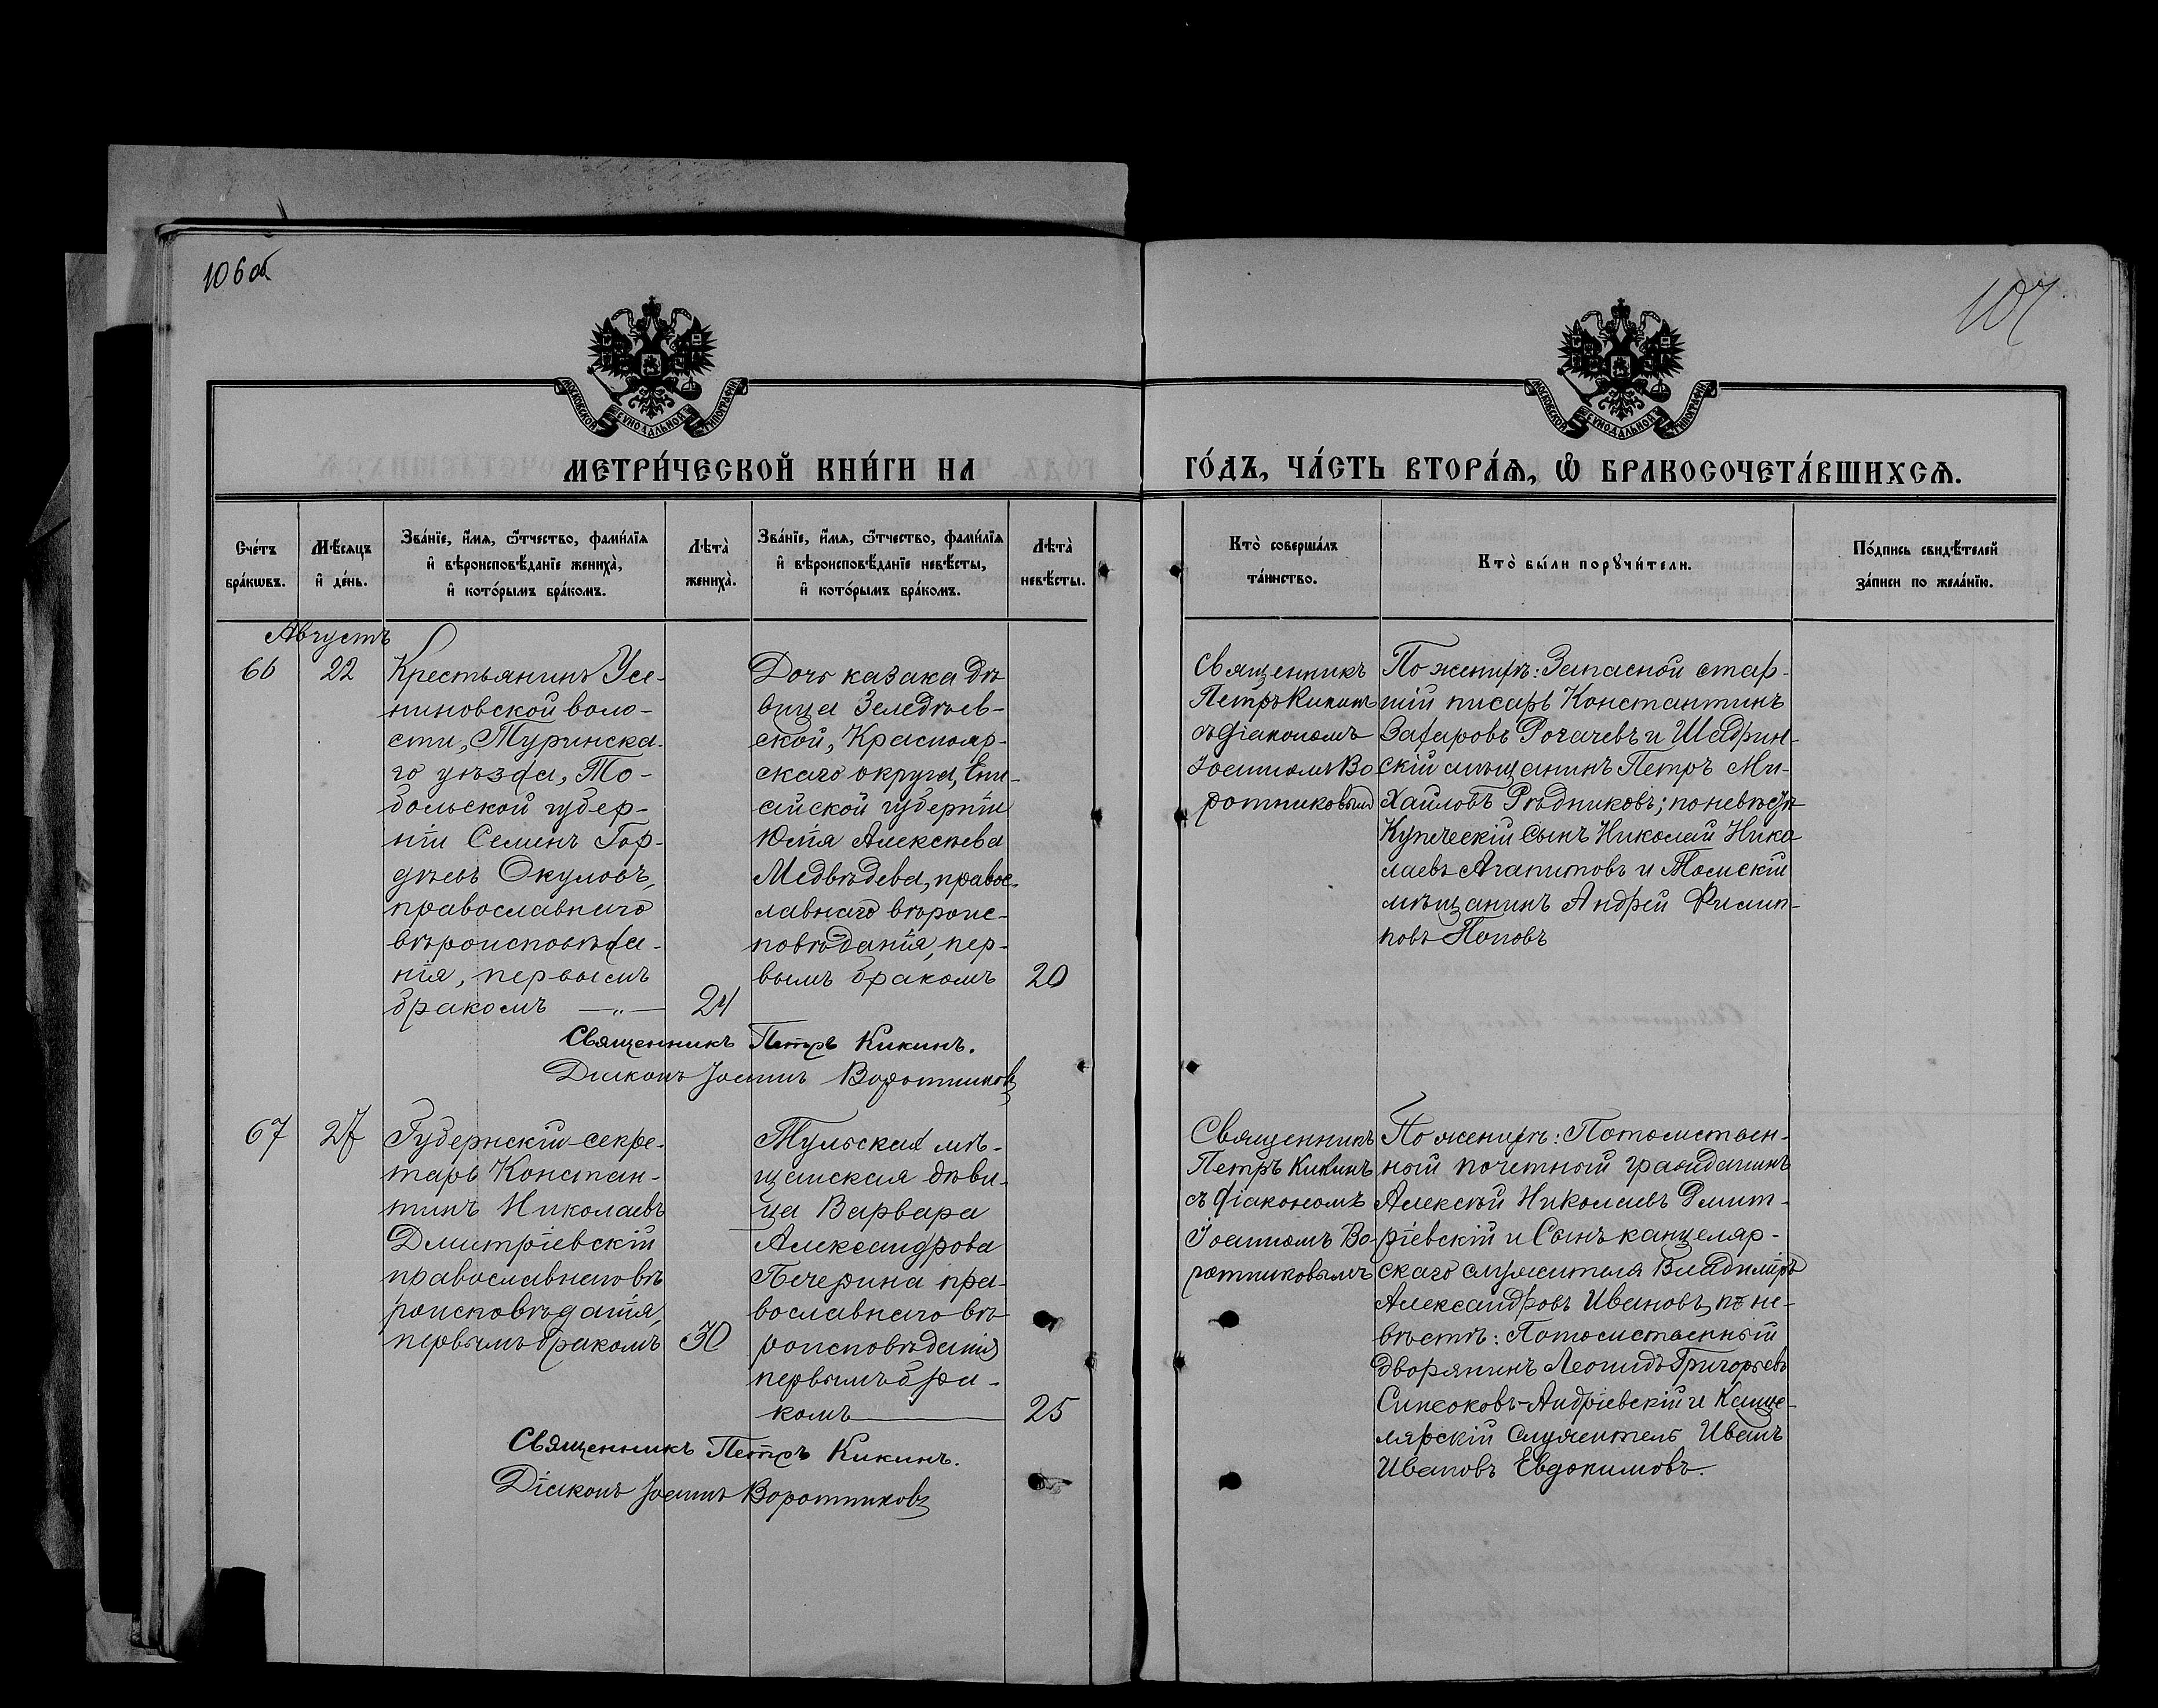 106 об
107
МОСКОВСКОЙ СѴНОДАЛЬНОЙ ТИПОГРАФІИ
МОСКОВСКОЙ СѴНОДАЛЬНОЙ ТИПОГРАФІИ
МЕТРИ́ЧЕСКОЙ КНИ́ГИ НА
ГО́ДЪ, ЧА́СТЬ ВТОРА́Я, Ѽ БРАКОСОЧЕТА́ВШИХСЯ.
Сче́тъ
бра́кѡвъ.
Мѣ́сяцъ
и҆ де́нь.
Зва́нїе, и҆́мя, ѻ҆́тчество, фами́лїя
и҆ вѣроисповѣ́данїе жениха̀,
и҆ кото́рымъ бра́комъ.
Лѣта̀
жениха̀.
Зва́нїе, и҆́мя, ѻ҆́тчество, фами́лїя
и҆ вѣроисповѣ́данїе невѣ́сты,
и҆ кото́рымъ бра́комъ.
Лѣта̀
невѣ́сты.
Кто̀ соверша́лъ
та́инство.
Кто̀ бы́ли порꙋчи́тели.
По́дпись свидѣ́телей
за́писи по жела́нїю.
Августъ
66
22
Крестьянинъ Усе-
ниновской воло-
сти, Туринска-
го уѣзда, То-
больской губер-
ніи Семенъ Гор-
дѣевъ Окуловъ,
православнаго
вѣроисповѣда-
нія, первымъ
бракомъ —„—
24
Дочь казака дѣ
вица Зеледѣев-
ской, Краснояр-
скаго округа, Ени-
сейской губерніи
Юлія Алексѣева
Медвѣдева, правос-
лавнаго вѣроис-
повѣданія, пер-
вымъ бракомъ
20
Священникъ
Петръ Кикинъ
съ діакономъ
Іоанномъ Во
ротниковымъ
По женихѣ: Запасной стар-
шій писарь Константинъ
Захаровъ Рогачевъ и Шадрин-
скій мѣщанинъ Петръ Ми-
хайловъ Рѣдниковъ; по невѣстѣ
Купеческій сынъ Николай Нико
лаевъ Агапитовъ и Томскій
мѣщанинъ Андрей Филип-
повъ Поповъ
Священникъ Петръ Кикинъ.
Діаконъ Іоаннъ Воротниковъ
67
27
Губернскій секре-
тарь Констан-
тинъ Николаевъ
Дмитріевскій
православнаго вѣ
роисповѣданія,
первымъ бракомъ
30
Тульская мѣ-
щанская дѣви-
ца Варвара
Александрова
Печерина пра-
вославнаго вѣ
роисповѣданія
первымъ бра-
комъ—
25
Священникъ
Петръ Кикинъ
съ діакономъ
Іоанномъ Во-
ротниковымъ
По женихѣ: Потомствен-
ный почетный гражданинъ
Алексѣй Николаевъ Дмит-
ріевскій и Сынъ канцеляр-
скаго служителя Владиміръ
Александровъ Ивановъ, по не-
вѣстѣ: Потомственный
дворянинъ Леонидъ Григорьевъ
Андріевскій и Канце-
лярскій служитель Иванъ
Ивановъ Евдокимовъ.
Священникъ Петръ Кикинъ.
Діаконъ Іоаннъ Воротниковъ